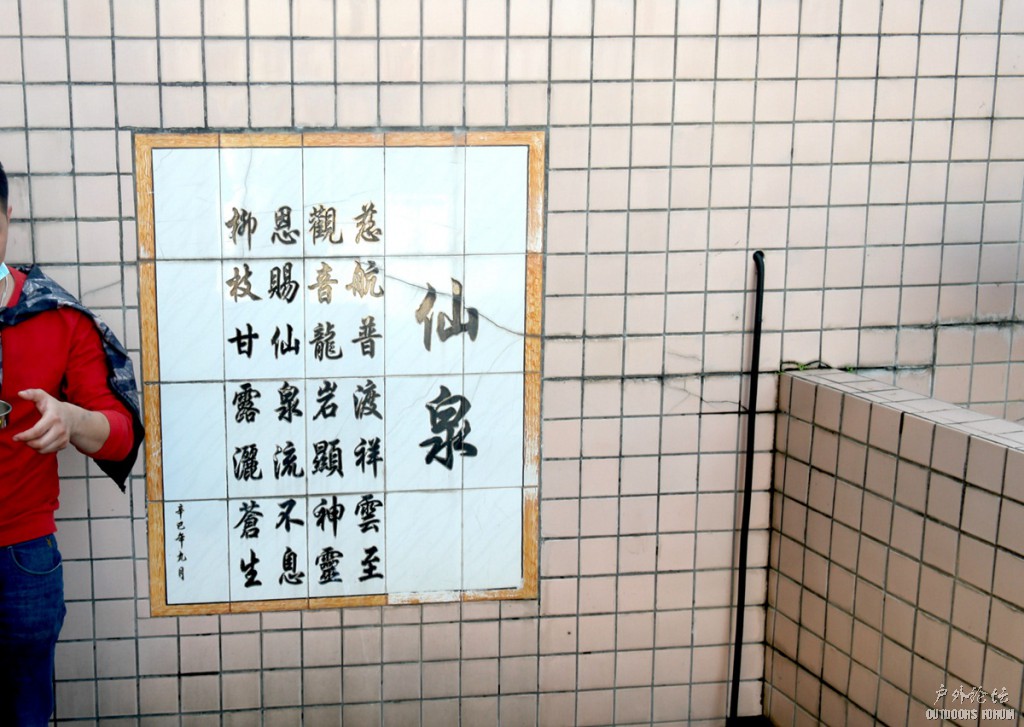 仙泉
慈航普渡祥雲至
觀音龍岩顯神靈
恩賜仙泉流不息
柳枝甘露灑蒼生
辛巳年九月
户外论坛
OUTDOORS FORUM